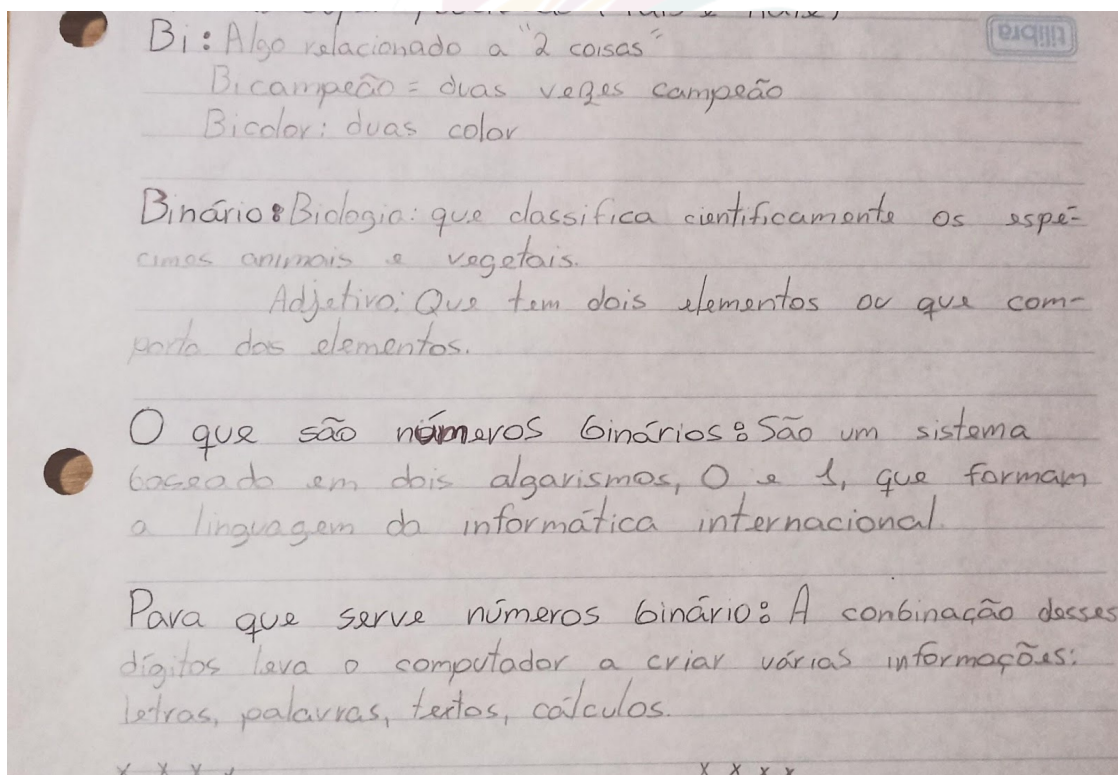 Bi: Algo relacionado a "2 coisas"
tilibra
Bicampeão = duas vezes campeão
Bicolor: duas color
Binário: Biologia: que classifica cientificamente os espé-
cimes animais e vegetais.
Adjetivo: Que tem dois elementos ou que com-
porta dos elementos.
O que são números binários: São um sistema
baseado em dois algarismos, 0 e 1, que formam
a linguagem da informática internacional.
Para que serve números binário: A conbinação desses
dígitos leva o computador a criar várias informações:
letras, palavras, textos, cálculos.
x x x
x x x x